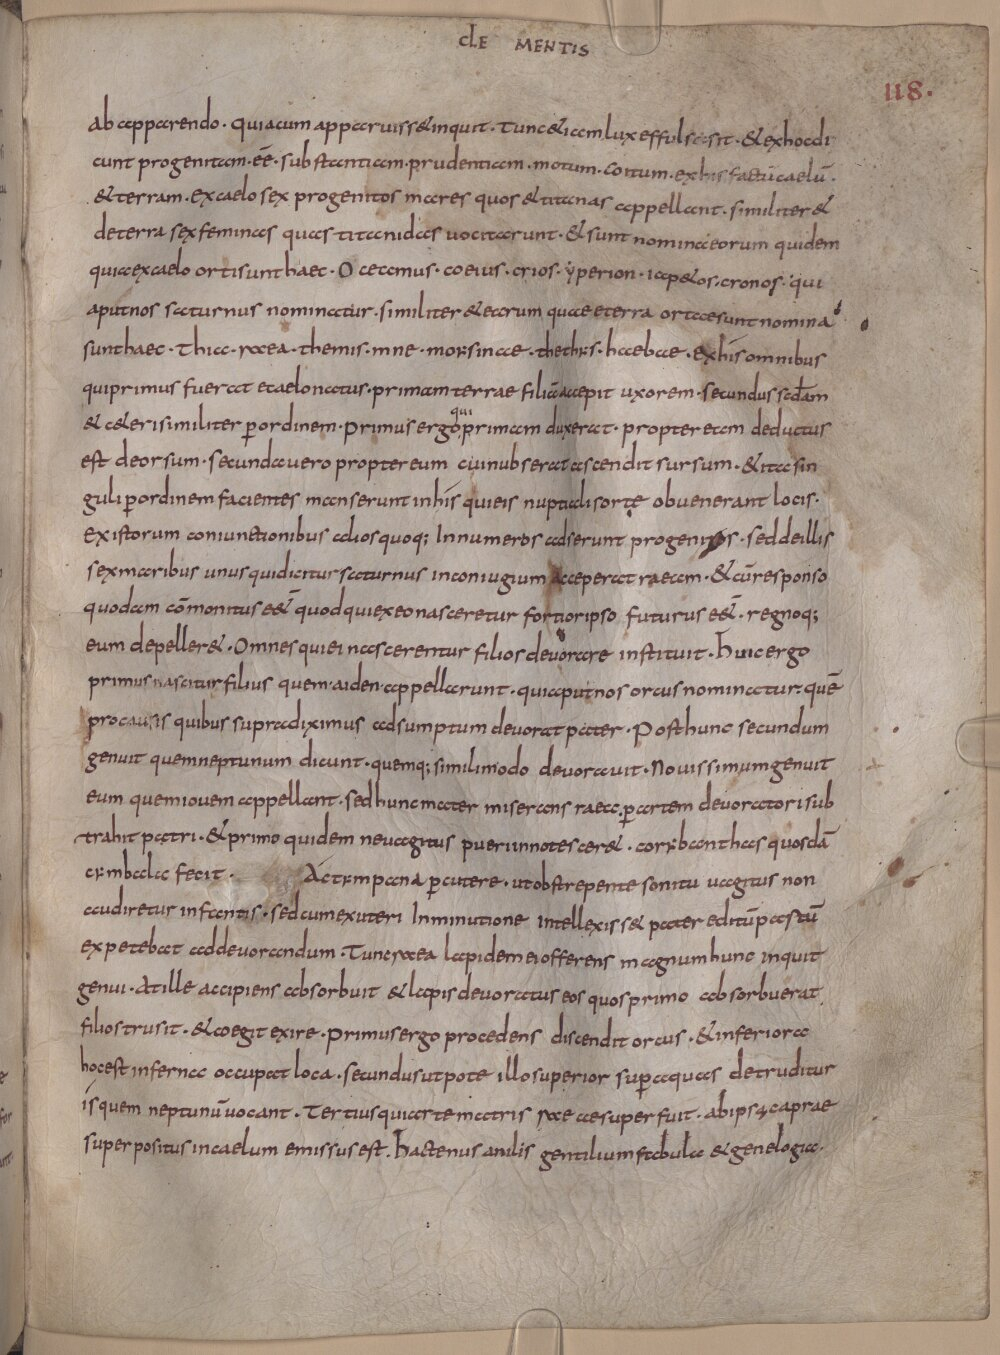 CLE MENTIS
118.
ab apparendo. quia cum apparuiss& inquit. tunc &iam lux effulsisit. & ex hoc di
cunt progenitam. eē. substantiam. prudentiam. motum. coitum. ex his factū caelū.
& terram. Ex caelo sex progenitos mares quos & titanas appellant. similiter &
de terra sex feminas quas titanidas uocitarunt. & sunt nomina eorum quidem
qui ex caelo orti sunt haec. Oceamus. coeius. crios. yperion. iap&os. cronos. qui
aput nos saturnus nominatur. similiter & earum quae e terra ortae sunt nomina
sunt haec. Thia. rxea. themis. mne. morsinae. thethrs. haebae. Ex his omnibus
qui primus fuerat e caelo natus. primam terrae filiā accepit uxorem. secundus scdam
& c&eri similiter p ordinem. primus ergo qui primam duxerat. propter eam deductus
est deorsum. secunda uero propter eum cui nubserat ascendit sursum. & ita sin
guli p ordinem facientes manserunt in his qui eis nuptiali sorte obuenerant locis.
Ex istorum coniunctionibus alios quoq; Innumeros adserunt progenitos. sed de illis
sex maribus unus qui dicitur saturnus in coniugium acceperat raeam. & cū responso
quodam cōmonitus e&̄ quod qui ex eo nasceretur fortior ipso futurus e&̄. regnoq;
eum depeller&. Omnes qui ei nascerentur filios deuorare instituit. huic ergo
primus nascitur filius quem aiden appellarunt. qui aput nos orcus nominatur. quē
pro causis quibus supra diximus adsumptum deuorat pater. Post hunc secundum
genuit quem neptunum dicunt. quemq; simili modo deuorauit. Nouissimum genuit
eum quem iouem appellant. sed hunc mater miserans raea. p artem deuoratori sub
trahit patri. & primo quidem ne uagitus pueri innotescer&. corrbanthas quosdā
crmbala fecit. Actrmpana pcutere. ut obstrepente sonitu uagitus non
audiretur infantis. sed cum ex uteri Inminutione intellexiss& pater editū partū
expetebat ad deuorandum. Tunc rxea lapidem ei offerens magnum hunc inquit
genui. At ille accipiens absorbuit & lapis deuoratus eos quos primo absorbuerat
filios trusit. & coegit exire. Primus ergo procedens discendit orcus. & inferiora
hoc est inferna occupat loca. secundus utpote illo superior sup aquas detruditur
is quem neptunū uocant. Tertius qui arte matris rxeae superfuit. ab ipsa caprae
superpositus in caelum emissus est. hactenus anilis gentilium fabula & genelogia.